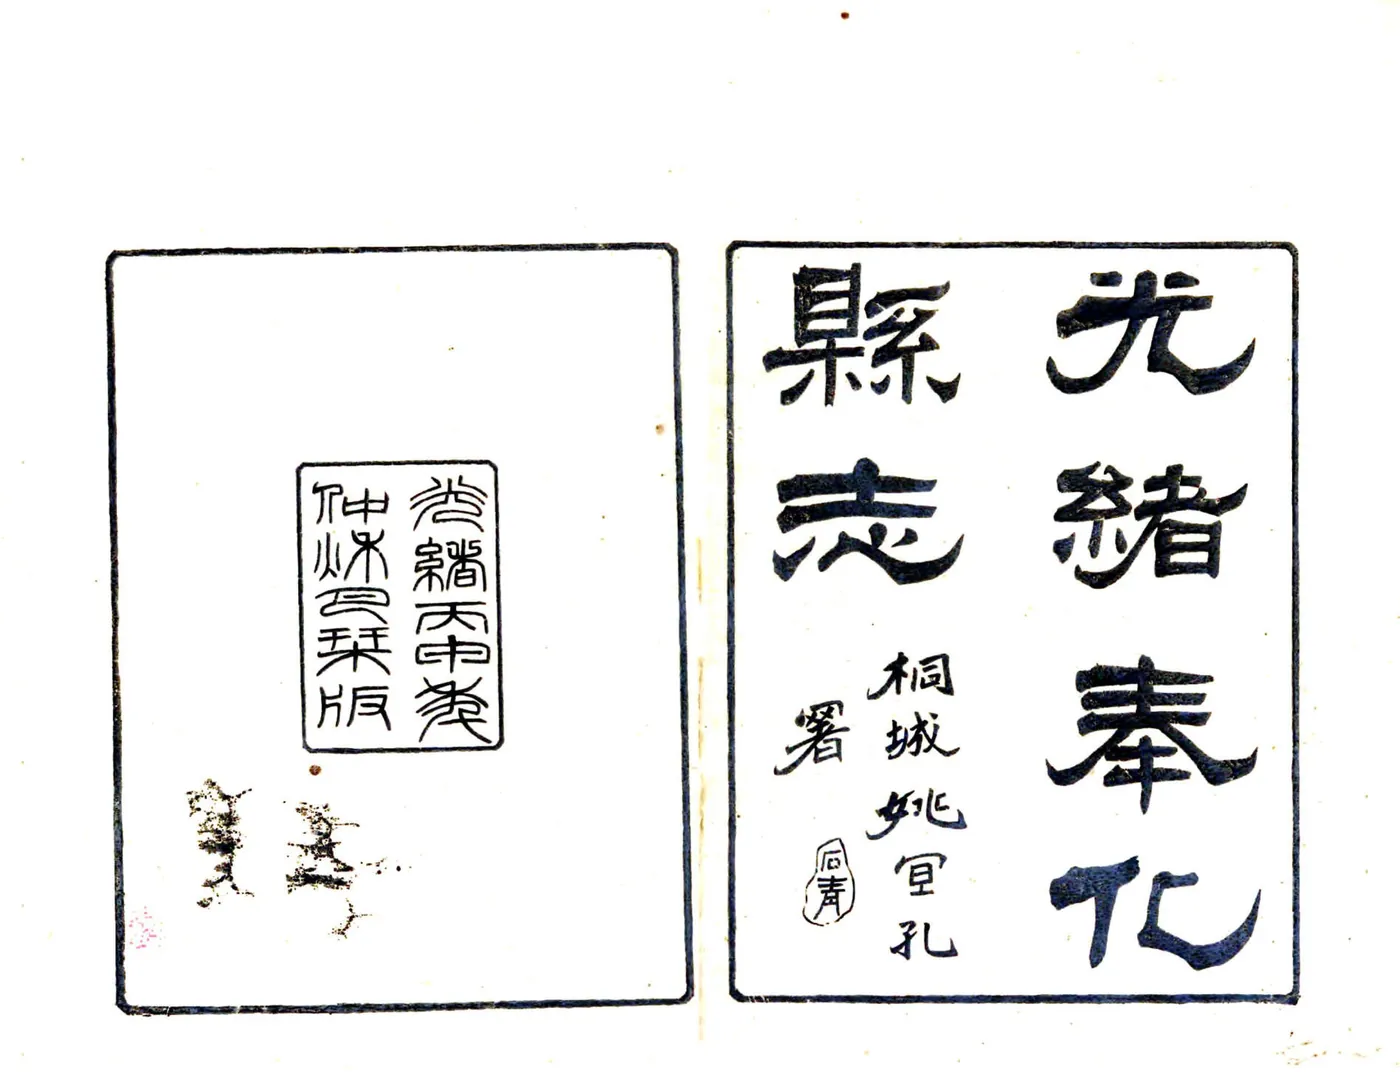 光緒奉化
縣志
桐城姚宣孔
署
石青
光緒丙申年
仲秋月栞版